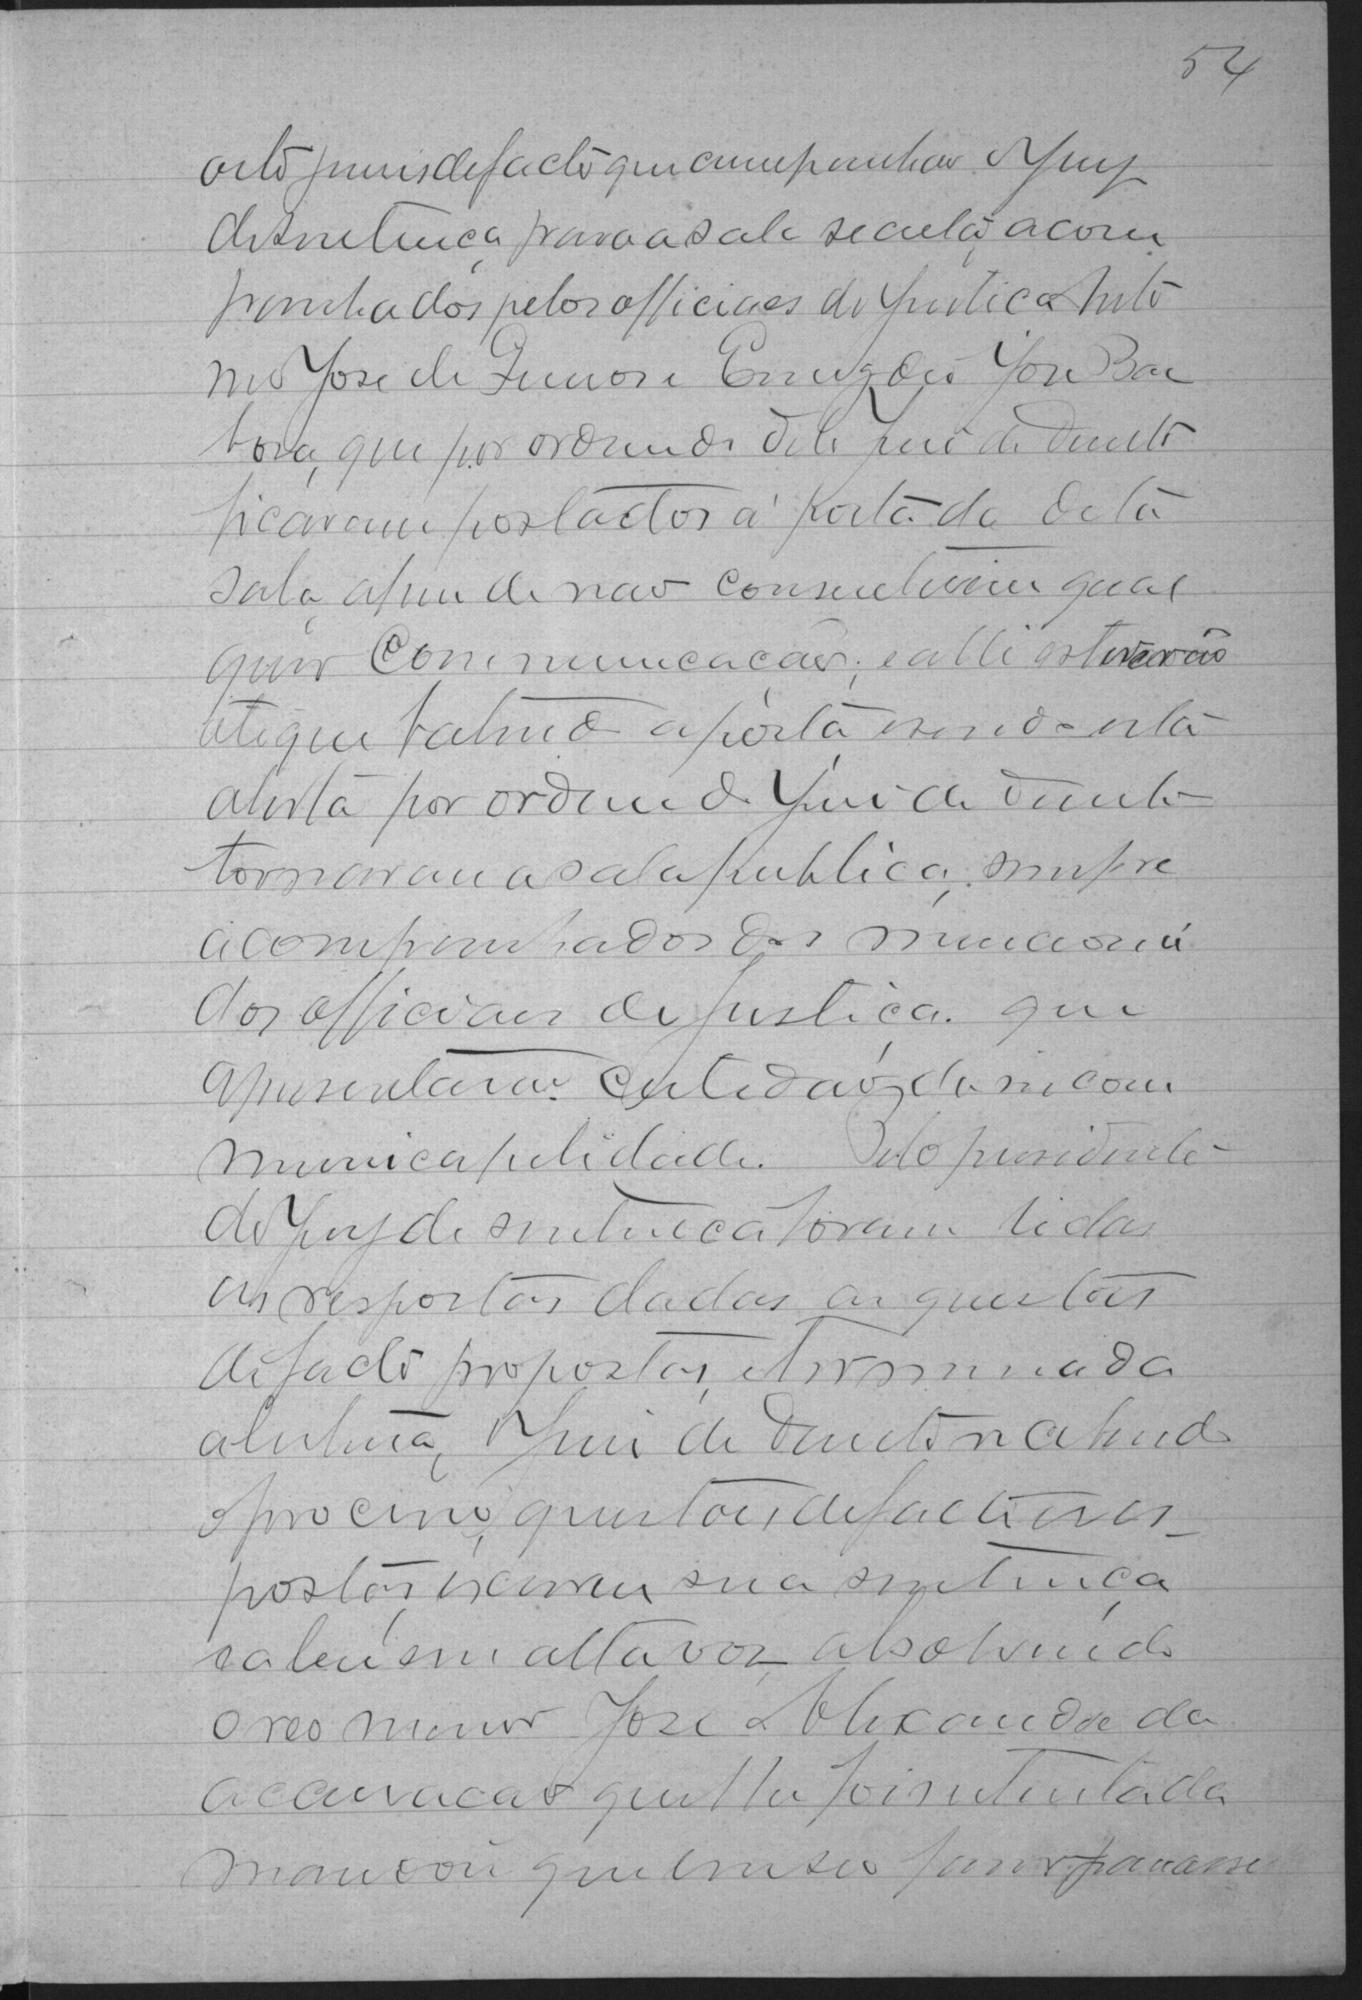 54
oito juris de facto que compunhão o Jury
de sentença para a sala secreta, acom
panhados pelos officiaes de Justica Anto
nio José de e Emygdio José Bar
bosa, que por ordem do dito Juiz de Direito
ficaram postados á porta da dita
sala, afim de não consentirem qual
quer Communicação; e alli estiverão
até que batendo a porta e sendo esta
aberta por ordem do Juiz de Direito
tornaram a sala publica, sempre
acompanhados dos mencioná
dos officiaes de justiça. que
apresentarão certidão da incom
municapelidade. Pelo presidente
do Jury de sentença foram lidas
as respostas dadas as questões
de facto propostas, e terminada
a leitura, o Juiz de Direito
questões de facto e res
postas, escreveu sua sentença
e a leu em alta voz, absolvendo
o reo menor José Alexandre da
accusacão que lhe foi intentada
mandou que em seo favor passasse